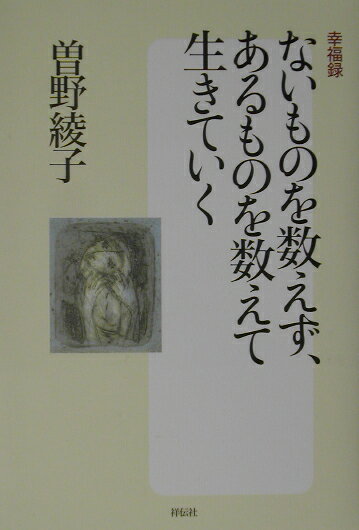 幸福録
ないものを数えず、
あるものを数えて
生きていく
曽野綾子
祥伝社